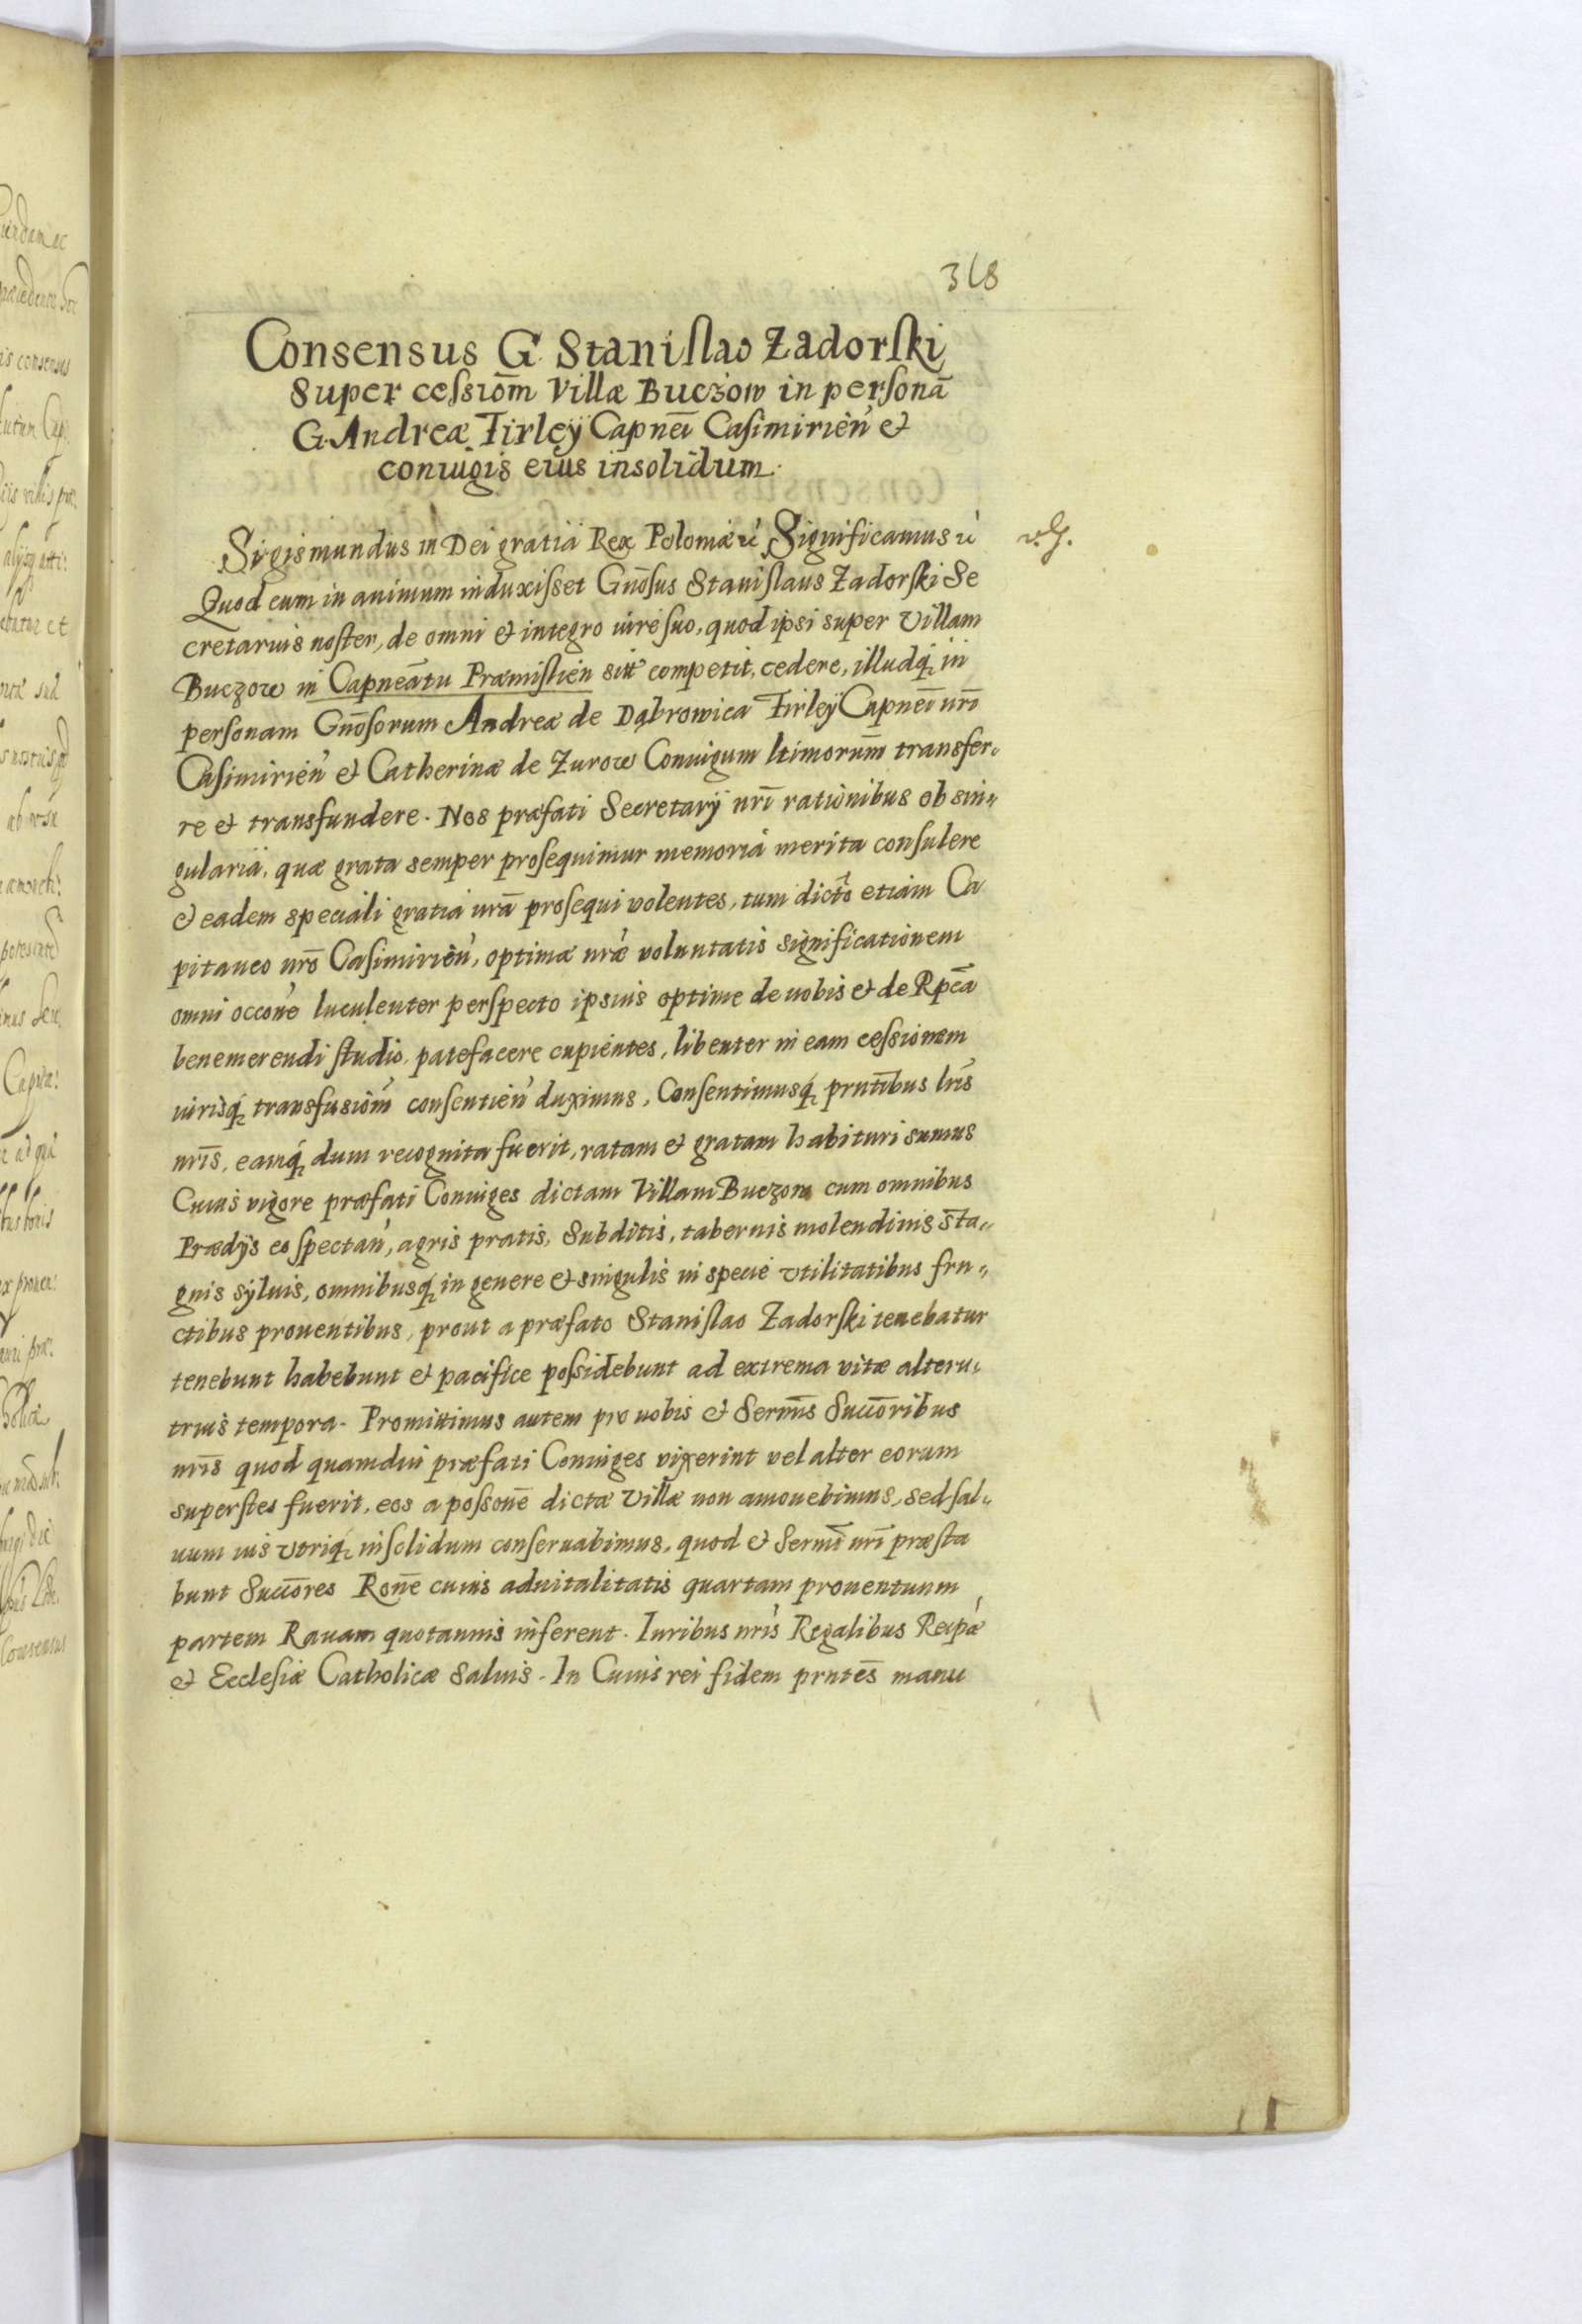 368
Consensus G. Stanislao Zadorski
Super cessiom̄ Villæ Buczow in personā
G. Andreæ Firleÿ Capneī Casimirien̄ &
coniugis eius insolidum.
Sigismundus III Dei gratia Rex Poloniæ &c̀ Significamus &c̀
Quod cum in animum induxisset Gnōsus Stanislaus Zadorski Se
cretarius noster, de omni & integro iure suo, quod ipsi super Villam
Buczow in Capneātu Præmislien̄ sitt̄ competit, cedere, illudq́ in
personam Gnōsorum Andreæ de Dąbrowica Firleÿ Capneī nrī
Casimirien̄ & Catherinæ de Zurow Coniugum ltimorum̄ transfer„
re & transfundere. Nos præfati Secretarÿ nrī rationibus ob sin„
gularia, quæ grata semper prosequimur memoria merita consulere
& eadem speciali gratia nrā prosequi volentes, tum dictō etiam Ca
pitaneo nrō Casimirien̄, optimæ nrǣ voluntatis significationem
omni occonē luculenter perspecto ipsius optime de nobis & de Rpcā
benemerendi studio, patefacere cupientes, libenter in eam cessionem
iurisq́ transfusiom̄ consentien̄ duximus, Consentimusq́ prntībus lrīs
nrīs, eamq́ dum recognita fuerit, ratam & gratam habituri sumus
Cuius vigore præfati Coniuges dictam Villam Buczow cum omnibus
Prædÿs eo spectan̄, agris pratis, Subditis, tabernis molendinis sta„
gnis syluis, omnibusq́ in genere & singulis in specie vtilitatibus fru„
ctibus prouentibus, prout a præfato Stanislao Zadorski tenebatur
tenebunt habebunt & pacifice possidebunt ad extrema vitæ alteru„
trius tempora. Promittimus autem pro nobis & Sermīs Succōribus
nrīs quod quamdiu præfati Coniuges vixerint vel alter eorum
superstes fuerit, eos a possonē dictæ Villæ non amouebimus, sed sal„
uum ius vtriq́ insolidum conseruabimus, quod & Sermī nrī præsta
bunt Succōres Ronē cuius aduitalitatis quartam prouentuum
partem Rauam quotannis inferent. Iuribus nrīs Regalibus Reipǣ
& Ecclesiæ Catholicæ Saluis. In Cuius rei fidem prntēs manu